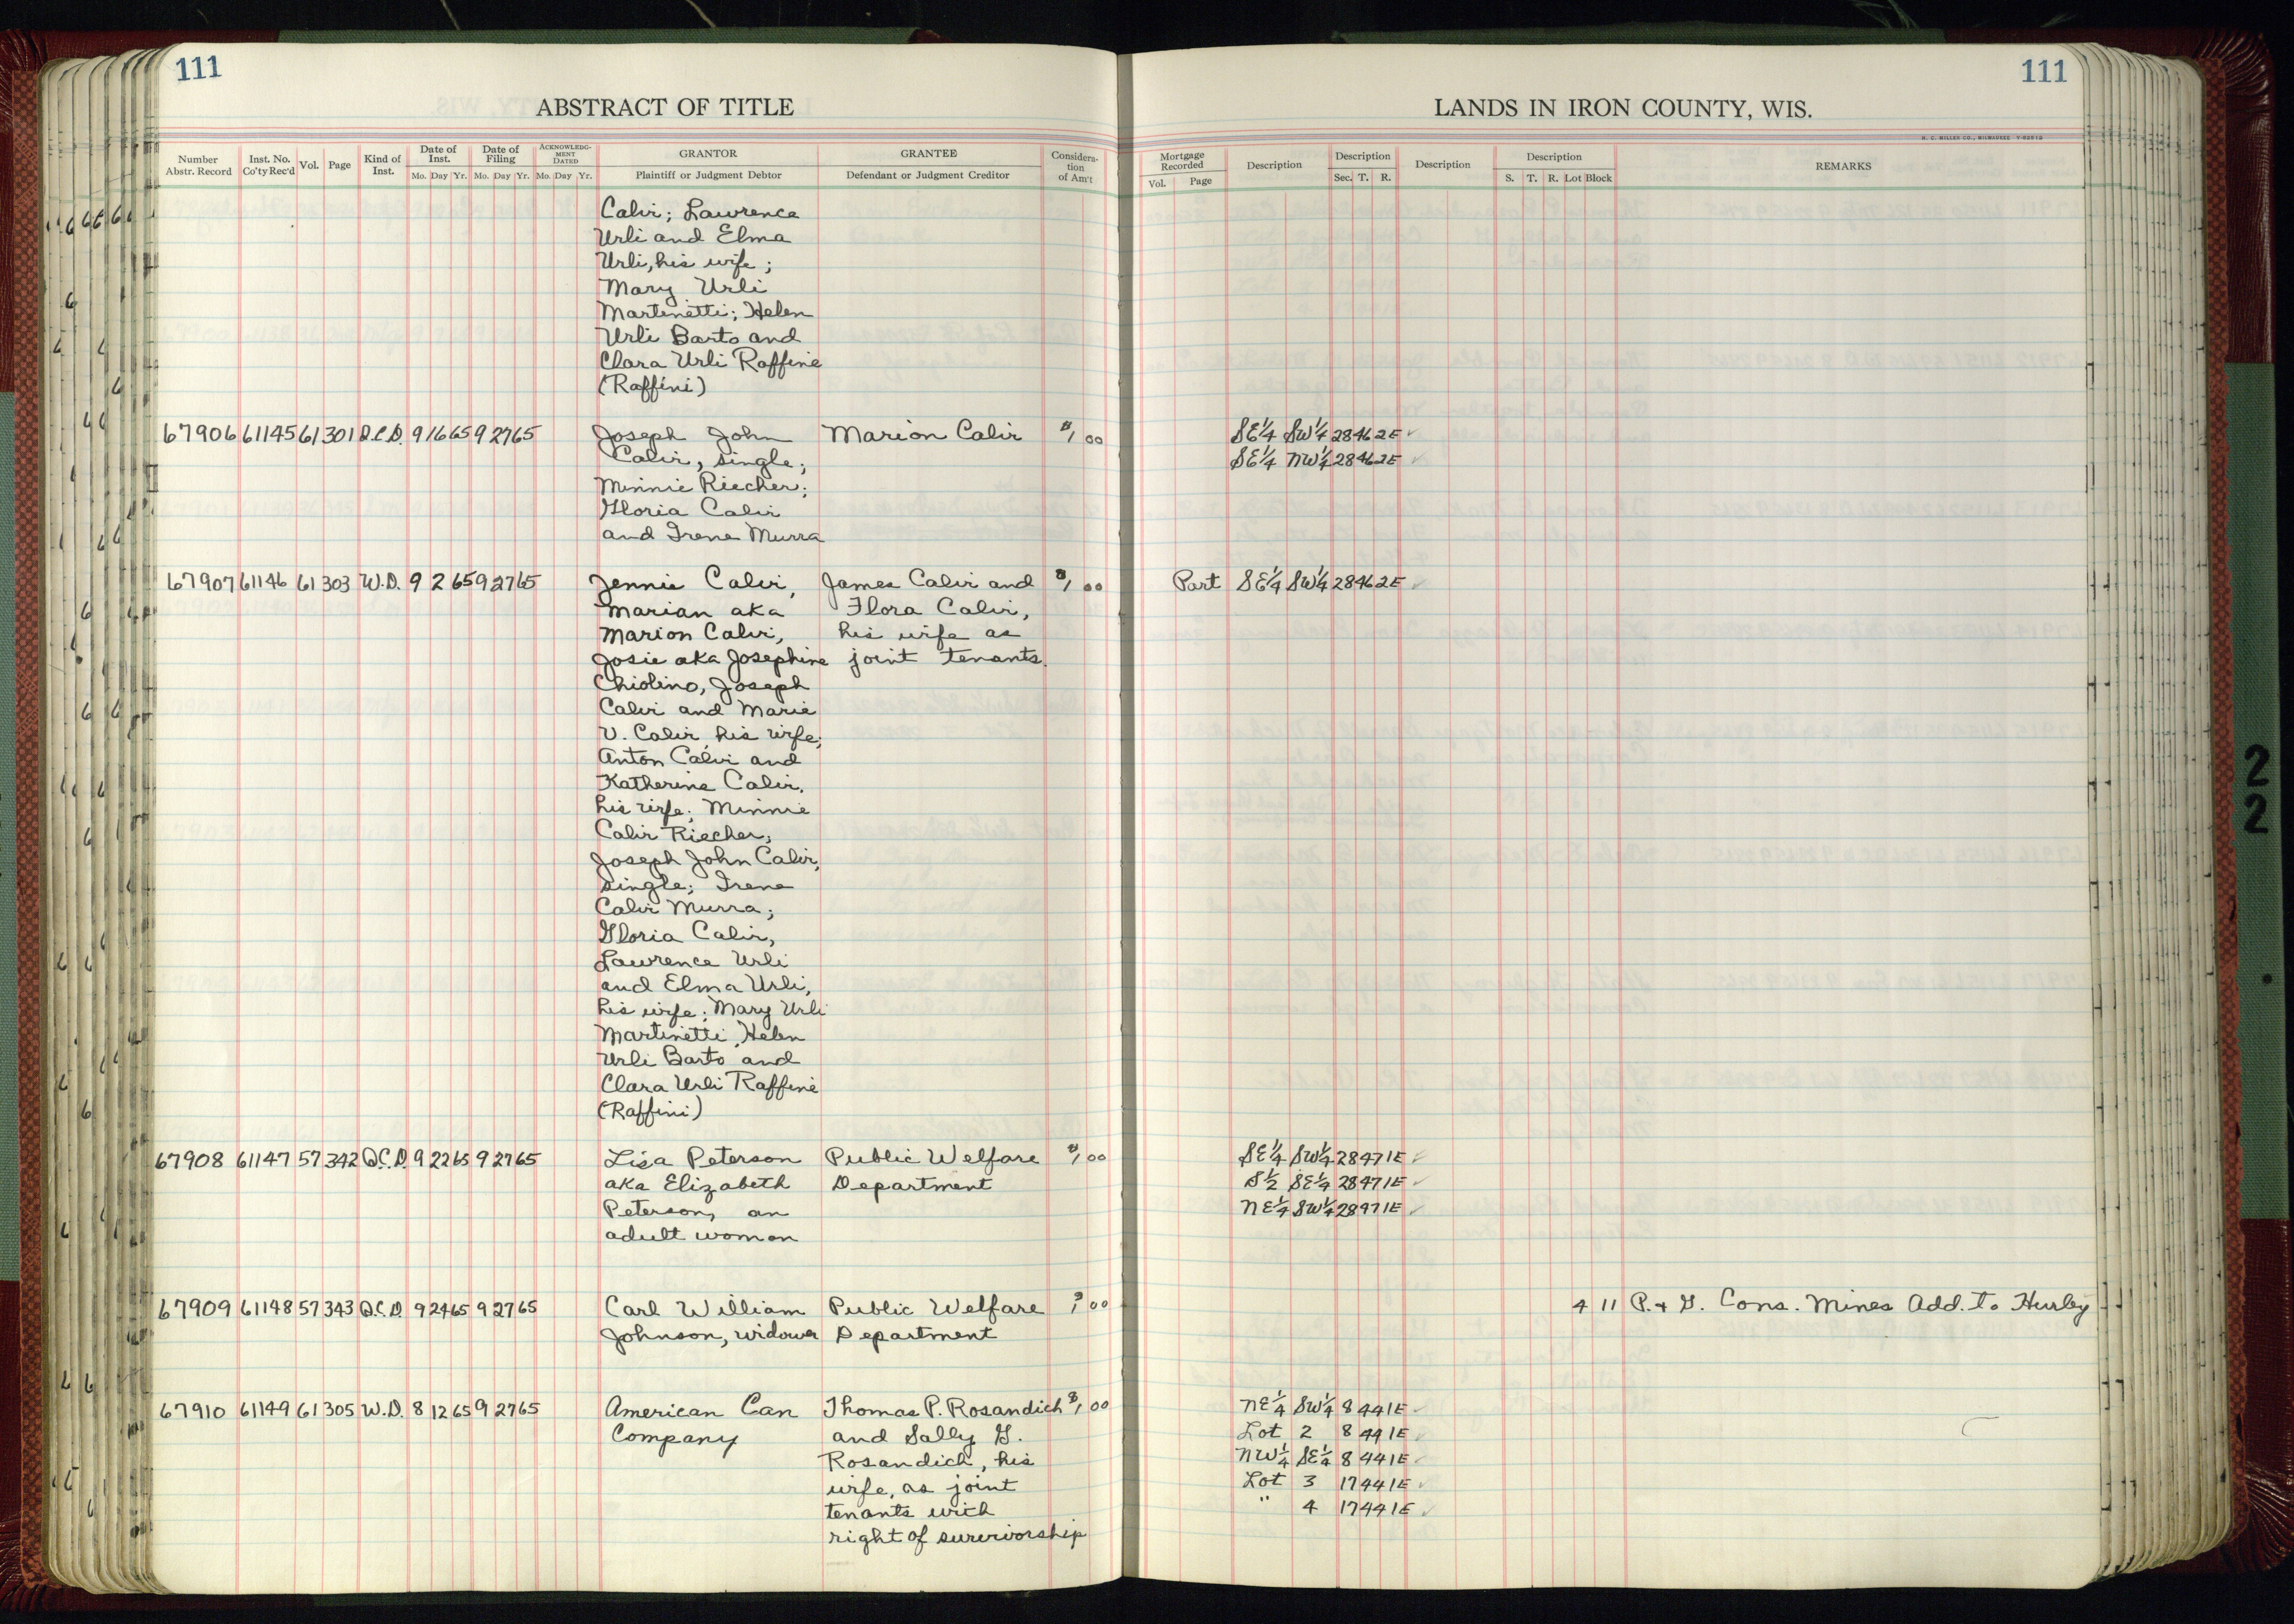 111
ABSTRACT OF TITLE
Number Abstr. Record | Inst. No. Co'ty Rec'd | Vol. | Page | Kind of Inst. | Date of Inst. Mo. Day Yr. | Date of Filing Mo. Day Yr. | ACKNOWLEDGMENT DATED Mo. Day Yr. | GRANTOR Plaintiff or Judgment Debtor | GRANTEE Defendant or Judgment Creditor | Consideration of Am't
Calvi; Lawrence
Urli and Elma
Urli, his wife;
Mary Urli
Martinetti; Helen
Urli Barto and
Clara Urli Raffine
(Raffini)
67906 61145 61 301 Q.C.D. 9 16 65 9 27 65 Joseph John Marion Calvi $1 00
Calvi, single;
Minnie Riecher;
Gloria Calvi
and Irene Murra
67907 61146 61 303 W.D. 9 2 65 9 27 65 Jennie Calvi, James Calvi and $1 00
Marian aka Flora Calvi,
Marion Calvi, his wife as
Josie aka Josephine joint tenants.
Chiolino, Joseph
Calvi and Marie
V. Calvi his wife;
Anton Calvi and
Katherine Calvi,
his wife; Minnie
Calvi Riecher;
Joseph John Calvi,
single; Irene
Calvi Murra;
Gloria Calvi,
Lawrence Urli
and Elma Urli,
his wife; Mary Urli
Martinetti, Helen
Urli Barto and
Clara Urli Raffine
(Raffini)
67908 61147 57 342 Q.C.D. 9 22 65 9 27 65 Lisa Peterson Public Welfare $1 00
aka Elizabeth Department
Peterson, an
adult woman
67909 61148 57 343 Q.C.D. 9 24 65 9 27 65 Carl William Public Welfare $1 00
Johnson, widower Department
67910 61149 61 305 W.D. 8 12 65 9 27 65 American Can Thomas P. Rosandich $1 00
Company and Sally G.
Rosandich, his
wife, as joint
tenants with
right of survivorship
111
LANDS IN IRON COUNTY, WIS.
H. C. MILLER CO., MILWAUKEE
Mortgage Recorded Vol. Page | Description | Description Sec. T. R. | Description | Description S. T. R. Lot Block | REMARKS
SE¼ SW¼ 28 46 2E ✓
SE¼ NW¼ 28 46 2E ✓
Part SE¼ SW¼ 28 46 2E ✓
SE¼ SW¼ 28 47 1E ✓
S½ SE¼ 28 47 1E ✓
NE¼ SW¼ 28 47 1E ✓
4 11 P. + G. Cons. Mines Add. to Hurley
NE¼ SW¼ 8 44 1E ✓
Lot 2 8 44 1E ✓
NW¼ SE¼ 8 44 1E ✓
Lot 3 17 44 1E ✓
" 4 17 44 1E ✓
2
2